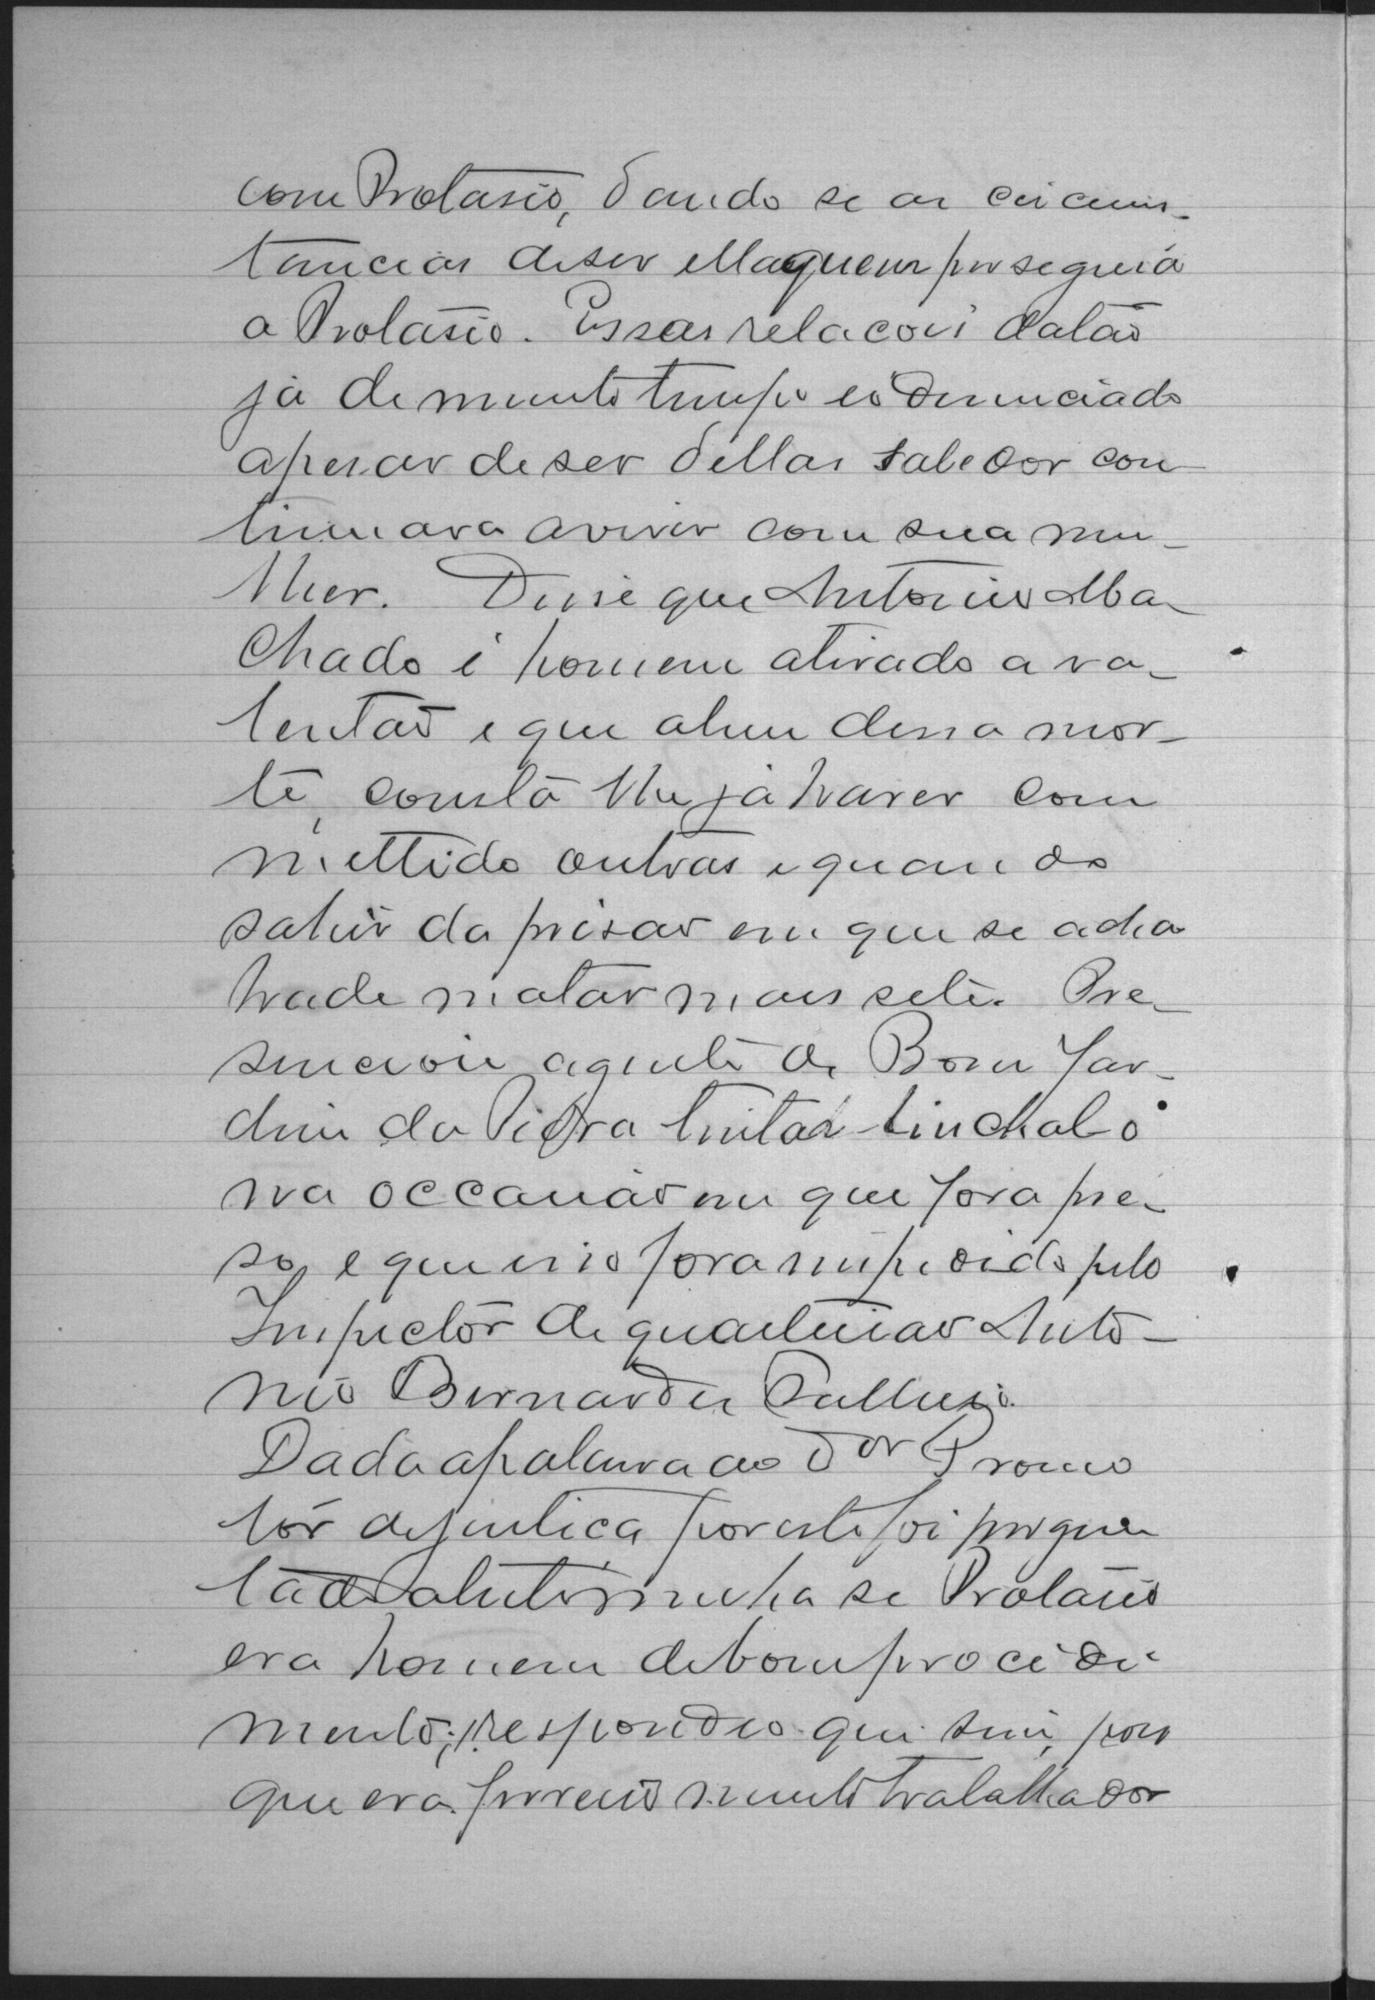 com Protasio, dando se as circums-
tancias de ser ella quem perseguia
a Protasio. Essas relacois datão
já de muito tempo e o denunciado
apesar de ser dellas sabedor con
tinuava a viver com sua mu-
lher. Disse que Antonio Ma-
chado é homem atirado a va-
lentão e que alem dessa mor-
te, consta lhe já haver com
mettido outras e quando
sahir da prisão em que se acha
hade matar mais sete. Pre-
senciou a gente de Bom Jar-
dim da Pedra tentar linchal-o
na occasião em que fora pre-
so, e que isso fora impedido pelo
Inspector de quarteirão Anto-
nio Bernardes
Dada a palavra ao Dor Promo
tor de justica por este foi pregun
tado a testimunha se Protasio
era homem de bom procidi-
mento; respondeo que sim, por
que era porem muito trabalhador